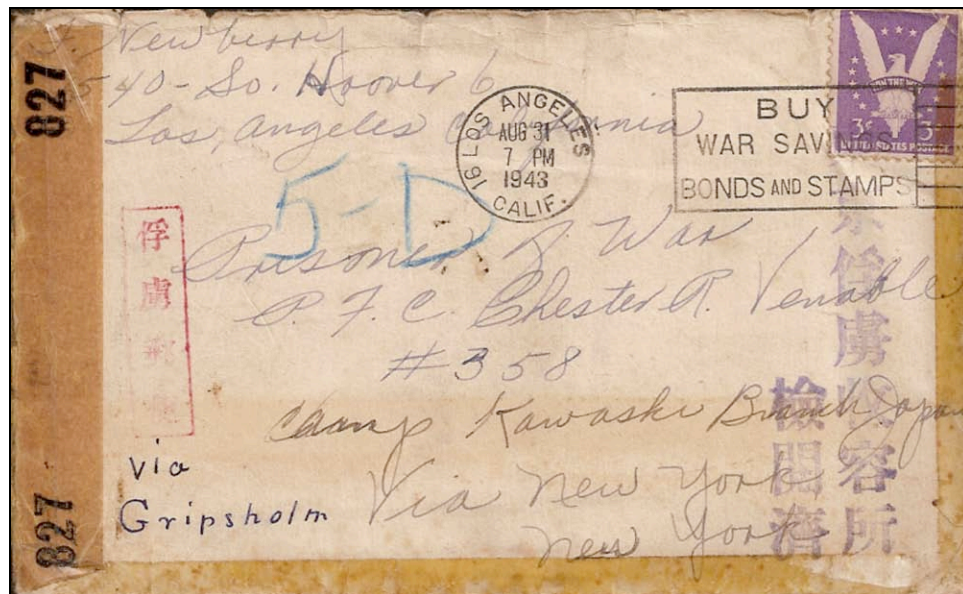 Newberry
40 - So. Hoover 6
Los Angeles California
LOS ANGELES
AUG 31
7 PM
1943
16 CALIF.
BUY
WAR SAVINGS
BONDS AND STAMPS
3¢ 3¢
UNITED STATES POSTAGE
827
827
5-D
俘虜郵便
Prisoner of War
P.F.C. Chester R. Venable
#358
Camp Kawaski Branch Japan
Via New York
New York
via
Gripsholm
京俘虜收容所
檢閱濟